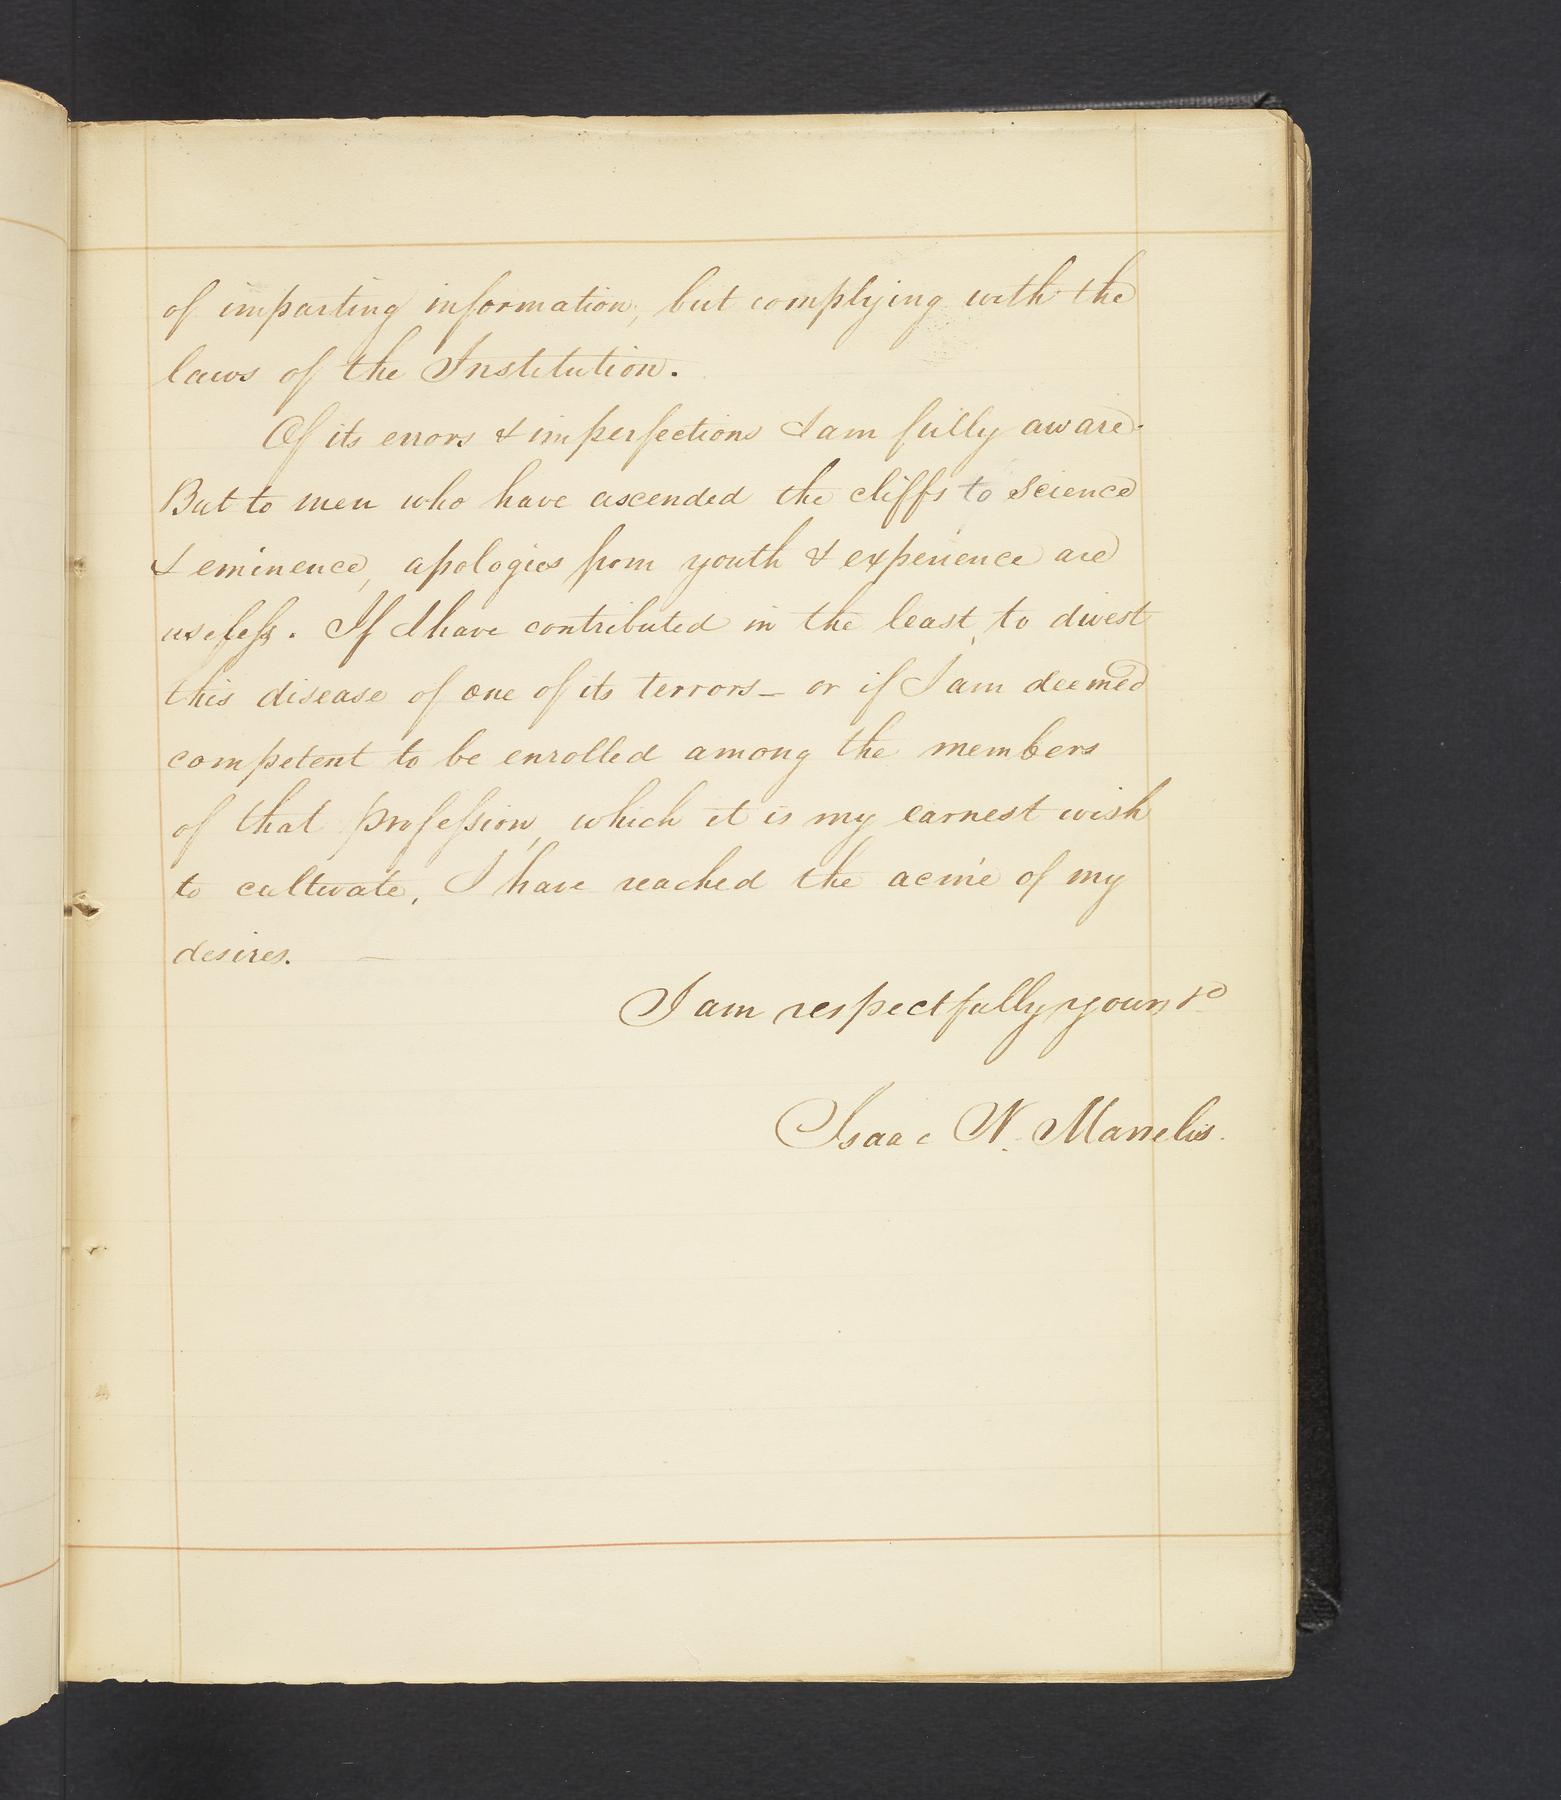 of imparting information, but complying with the
laws of the Institution.
Of its errors & imperfections I am fully aware.
But to men who have ascended the cliffs to Science
& eminence, apologies from youth & experience are
useless. If I have contributed in the least, to divest
this disease of one of its terrors— or if I am deemed
competent to be enrolled among the members
of that profession, which it is my earnest wish
to cultivate, I have reached the acme of my
desires. —
I am respectfully yours &c
Isaac N.